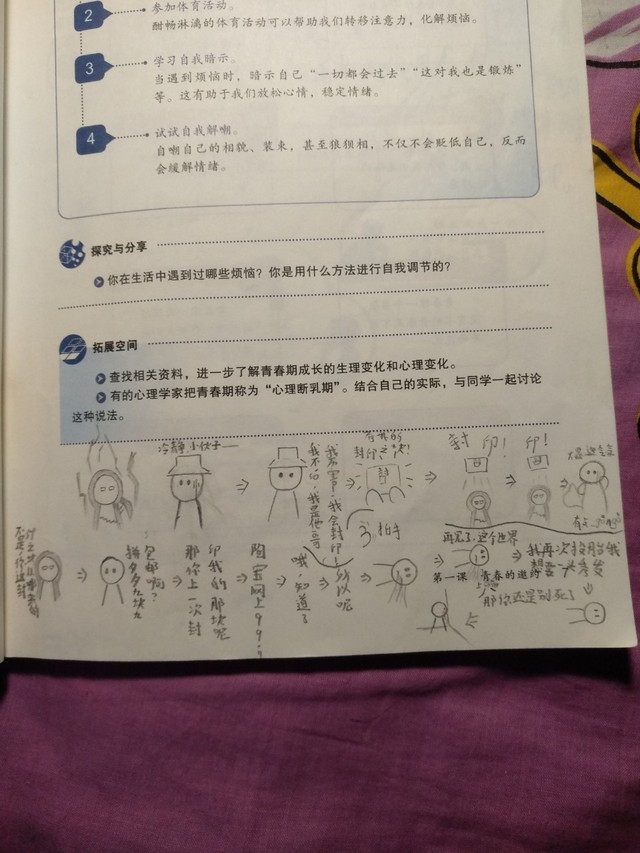 2 参加体育活动。
酣畅淋漓的体育活动可以帮助我们转移注意力，化解烦恼。
3 学习自我暗示。
当遇到烦恼时，暗示自己“一切都会过去”“这对我也是锻炼”
等。这有助于我们放松心情，稳定情绪。
4 试试自我解嘲。
自嘲自己的相貌、装束，甚至狼狈相，不仅不会贬低自己，反而
会缓解情绪。
探究与分享
你在生活中遇到过哪些烦恼？你是用什么方法进行自我调节的？
拓展空间
查找相关资料，进一步了解青春期成长的生理变化和心理变化。
有的心理学家把青春期称为“心理断乳期”。结合自己的实际，与同学一起讨论
这种说法。
冷静小伙子——
我不怕，我是他哥
封
封 印！
印！
拍手
包邮啊？
拼多多九块九
那你上一次封
印我的那块呢
淘宝网上99.9
哦，知道了
所以呢
再见了，这个世界
我再次投胎我
第一课 青春的邀约
那你还是别死了